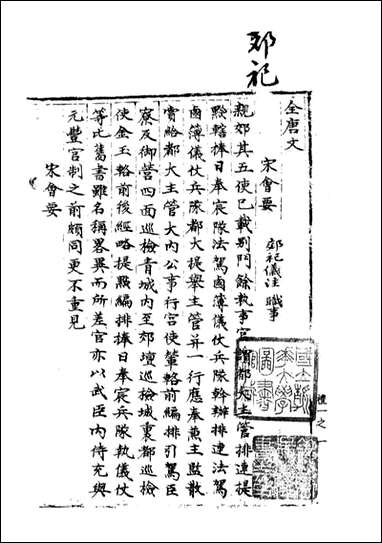 郊祀
全唐文
宋會要
郊祀儀注 職事
親郊其五使已載別門餘執事官謂都大主管排連提
㸃轄捧日奉宸隊法駕鹵簿儀仗兵隊幹辦排連法駕
鹵簿儀仗兵隊都大提舉主管并一行應奉薫主監散
賞給都大主管大內公事行宮使輦輅前編排引駕臣
寮及御營四面巡檢青城內至郊壇巡檢城裏都巡檢
使金玉輅前後經略提㸃編排捧日奉宸兵隊執儀仗
等比舊書雖名稱畧異而所差官亦以武臣內侍充與
元豐官制之前頗同更不重見
宋會要
禮一之一